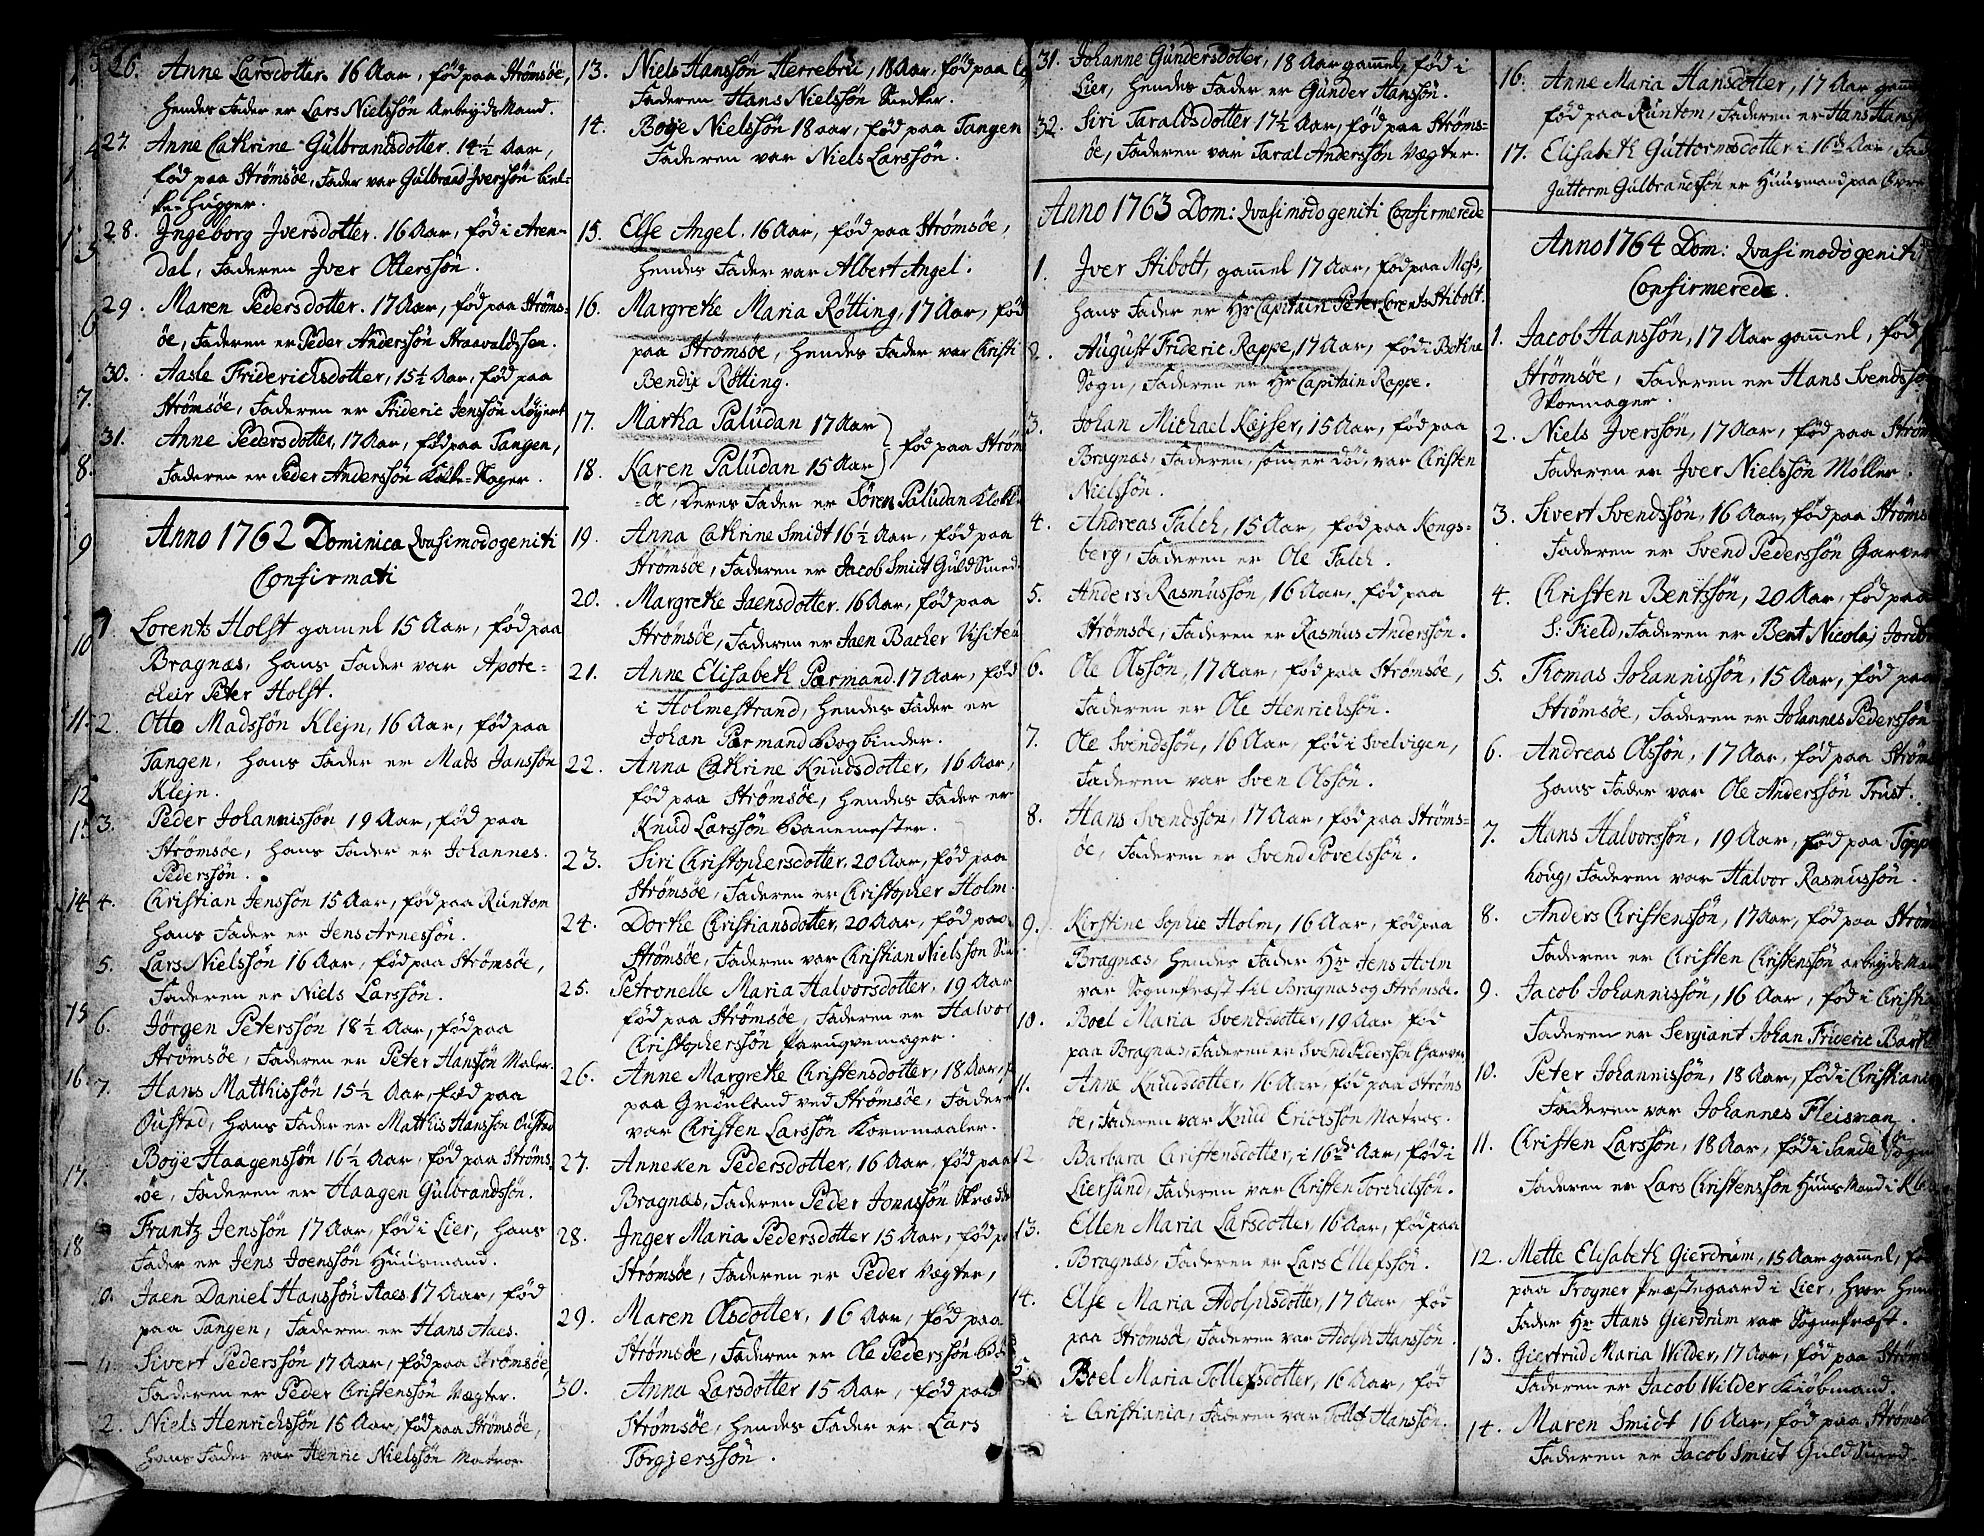 26. Anne Larsdotter. 16 Aar, fød paa Strømsøe,
hendes Fader er Lars Nielssøn Arbeyds Mand.
27. Anne Cathrine Gulbrandsdotter. 14½ Aar,
fød paa Strømsøe, Fader var Gulbrand Iverssøn biel-
ke-Hugger.
28. Ingeborg Iversdotter. 16 Aar, fød i Aren-
dal, Faderen Iver Otterssøn.
29. Maren Pedersdotter. 17 Aar, fød paa Strøms-
øe, Faderen er Peder Anderssøn Straavaldsen.
30. Aasle Friderichsdotter, 15½ Aar, fød paa
Strømsøe, Faderen er Frideric Jenssøn Røyert
31. Anne Pedersdotter, 17 Aar, fød paa Tangen,
Faderen er Peder Anderssøn Kulle-Tager.
Anno 1762 Dominica Qvasimodogeniti
Confirmati
1. Lorents Holst gamel 15 Aar, fød paa
Bragnæs, hans Fader var Apote-
cheir Peter Holst.
2. Otto Madssøn Klejn, 16 Aar, fød paa
Tangen, hans Fader er Mads Janssøn
Klejn.
3. Peder Johannissøn 19 Aar, fød paa
Strømsøe, hans Fader er Johannes
Pederssøn.
4. Christian Jenssøn 15 Aar, fød paa Runtom
hans Fader er Jens Arnessøn.
5. Lars Nielssøn 16 Aar, fød paa Strømsøe,
Faderen er Niels Larssøn.
6. Jørgen Peterssøn 18½ Aar, fød paa
Strømsøe, Faderen er Peter Hanssøn Maler.
7. Hans Matthissøn 15½ Aar, fød paa
Oustad, hans Fader er Matthis Hanssøn Oustad
Boye Haagenssøn 16½ Aar, fød paa Strøms-
øe, Faderen er Haagen Gulbrandssøn.
Frantz Jenssøn 17 Aar, fød i Lier, hans
Fader er Jens Joenssøn Huusmand.
0. Jaen Daniel Hanssøn Aaes 17 Aar, fød
paa Tangen, Faderen er Hans Aaes.
Sivert Pederssøn 17 Aar, fød paa Strømsøe,
Faderen er Peder Christenssøn Vægter.
2. Niels Henrichssøn 15 Aar, fød paa Strømsøe,
hans Fader var Henric Nielssøn Matros
13. Niels Hanssøn Herrebru, 18 Aar, fød paa
Faderen Hans Nielssøn Snedker.
14. Boye Nielssøn 18 aar, fød paa Tangen
Faderen var Niels Larssøn.
15. Else Angel. 16 Aar, fød paa Strømsøe,
hendes Fader var Albert Angel.
16. Margrethe Maria Røtting, 17 Aar, fød
paa Strømsøe, hendes Fader var Christi
Bendix Røtting.
17. Martha Paludan 17 Aar
18. Karen Paludan 15 Aar } fød paa Strøm
øe, Deres Fader er Søren Paludan Klokk
19. Anna Cathrine Smidt 16½ Aar, fød paa
Strømsøe, Faderen er Jacob Smidt Guld Smed
20. Margrethe Jaensdotter. 16 Aar, fød paa
Strømsøe, Faderen er Jaen Bacher Visiteu
21. Anne Elisabeth Pærmand. 17 Aar, fød
i Holmestrand, hendes Fader er
Johan Pærmand Bogbinder.
22. Anna Cathrine Knudsdotter, 16 Aar,
fød paa Strømsøe, hendes Fader er
Knud Larssøn Banemester.
23. Siri Christophersdotter. 20 Aar, fød paa
Strømsøe, Faderen er Christopher Holm.
24. Dorthe Christiansdotter, 20 Aar, fød paa
Strømsøe, Faderen var Christian Nielssøn
25. Petronelle Maria Halvorsdotter, 19 Aar
fød paa Strømsøe, Faderen er Halvor
Christopherssøn Parugvemager.
26. Anne Margrethe Christensdotter, 18 Aar,
paa Grønland ved Strømsøe, Fadere
var Christen Larssøn Kornmaaler.
27. Anneken Pedersdotter, 16 Aar, fød paa
Bragnæs, Faderen Peder Jonassøn Skrædder
28. Inger Maria Pedersdotter 15 Aar, fød pa
Strømsøe, Faderen er Peder Vægter,
29. Maren Olsdotter, 16 Aar, fød paa
Strømsøe, Faderen er Ole Pederssøn
30. Anna Larsdotter 15 Aar, fød paa
Strømsøe, hendes Fader er Lars
Torgjerssøn.
31. Johanne Gundersdotter, 18 Aar gammel, fød i
Lier, hendes Fader er Gunder Hanssøn.
32. Siri Taraldsdotter 17½ Aar, fød paa Strøms-
øe, Faderen var Taral Anderssøn Vægter.
Anno 1763 Dom: Qvasimodogeniti Confirmerede
1. Iver Stibolt, gammel 17 Aar, fød paa Moss,
hans Fader er Hr Capitain Peter Lorents Stibolt.
2. August Frideric Rappe, 17 Aar, fød i Botne
Sogn, Faderen er Hr Capitain Rappe.
3. Johan Michael Kejser, 15 Aar, fød paa
Bragnæs, Faderen, som er død, var Christen
Nielssøn.
4. Andreas Falch, 15 Aar, fød paa Kongs-
berg, Faderen er Ole Falch.
5. Anders Rasmussøn, 16 Aar, fød paa
Strømsøe, Faderen er Rasmus Anderssøn.
6. Ole Olssøn, 17 Aar, fød paa Strømsøe,
Faderen er Ole Henrichssøn.
7. Ole Svendssøn, 16 Aar, fød i Svelvigen,
Faderen var Sven Olssøn.
8. Hans Svendssøn, 17 Aar, fød paa Strøms-
øe, Faderen er Svend Povelssøn.
9. Kirstine Sophie Holm, 16 Aar, fød paa
Bragnæs, hendes Fader Hr Jens Holm
var Sognepræst til Bragnæs og Strømsøe.
10. Boel Maria Svendsdotter, 19 Aar, fød
paa Bragnæs, Faderen er Svend Pederssøn Garver
11. Anne Knudsdotter, 16 Aar, fød paa Strøms
øe, Faderen var Knud Erichssøn Matros.
12. Barbara Christensdotter, i 16de Aar, fød i
Liersund, Faderen var Christen Torchelssøn.
13. Ellen Maria Larsdotter, 16 Aar, fød paa
Bragnæs, Faderen er Lars Ellefssøn.
14. Else Maria Adolphsdotter, 17 Aar, fød
paa Strømsøe, Faderen var Adolph Hanssøn.
15. Boel Maria Tollefsdotter, 16 Aar, fød
i Christiania, Faderen var Tollef Hanssøn.
16. Anne Maria Hansdotter, 17 Aar gamm
fød paa Runtom, Faderen er Hans Hanss
17. Elisabeth Guttormsdotter i 16de Aar, Fad
Guttorm Gulbrandssøn er Huusmand paa
Anno 1764 Dom: Qvasimodogeniti
Confirmerede.
1. Jacob Hanssøn, 17 Aar gammel, fød
Strømsøe, Faderen er Hans Svendssøn
Skoemager.
2. Niels Iverssøn, 17 Aar, fød paa Strøm
Faderen er Iver Nielssøn Møller.
3. Sivert Svendssøn, 16 Aar, fød paa Strøms
Faderen er Svend Pederssøn Garver
4. Christen Bentssøn, 20 Aar, fød paa
S: Field, Faderen er Bent Nicolaj Jord
5. Thomas Johannissøn, 15 Aar, fød paa
Strømsøe, Faderen er Johannes Pederssøn
6. Andreas Olssøn, 17 Aar, fød paa Strøms
hans Fader var Ole Anderssøn Trust.
7. Hans Halvorssøn, 19 Aar, fød paa Toppe
houg, Faderen var Halvor Rasmussøn.
8. Anders Christenssøn, 17 Aar, fød paa Strøm
Faderen er Christen Christenssøn arbeyds Man
9. Jacob Johannissøn, 16 Aar, fød i Christia
Faderen er Sergiant Johan Frideric Barth
10. Peter Johannissøn, 18 Aar, fød i Christiania
Faderen var Johannes Fleisman.
11. Christen Larssøn, 18 Aar, fød i Sande Sogn
Faderen er Lars Christenssøn Huus Mand i
12. Mette Elisabeth Gierdrum, 15 Aar gammel, fø
paa Frogner Præstegaard i Lier, hvor hen
Fader Hr Hans Gierdrum var Sognepræst.
13. Giertrud Maria Wilder, 17 Aar, fød paa Strøms
Faderen er Jacob Wilder Kiøbmand.
14. Maren Smidt 16 Aar, fød paa Strømsøe
Faderen er Jacob Smidt Guld Smed.